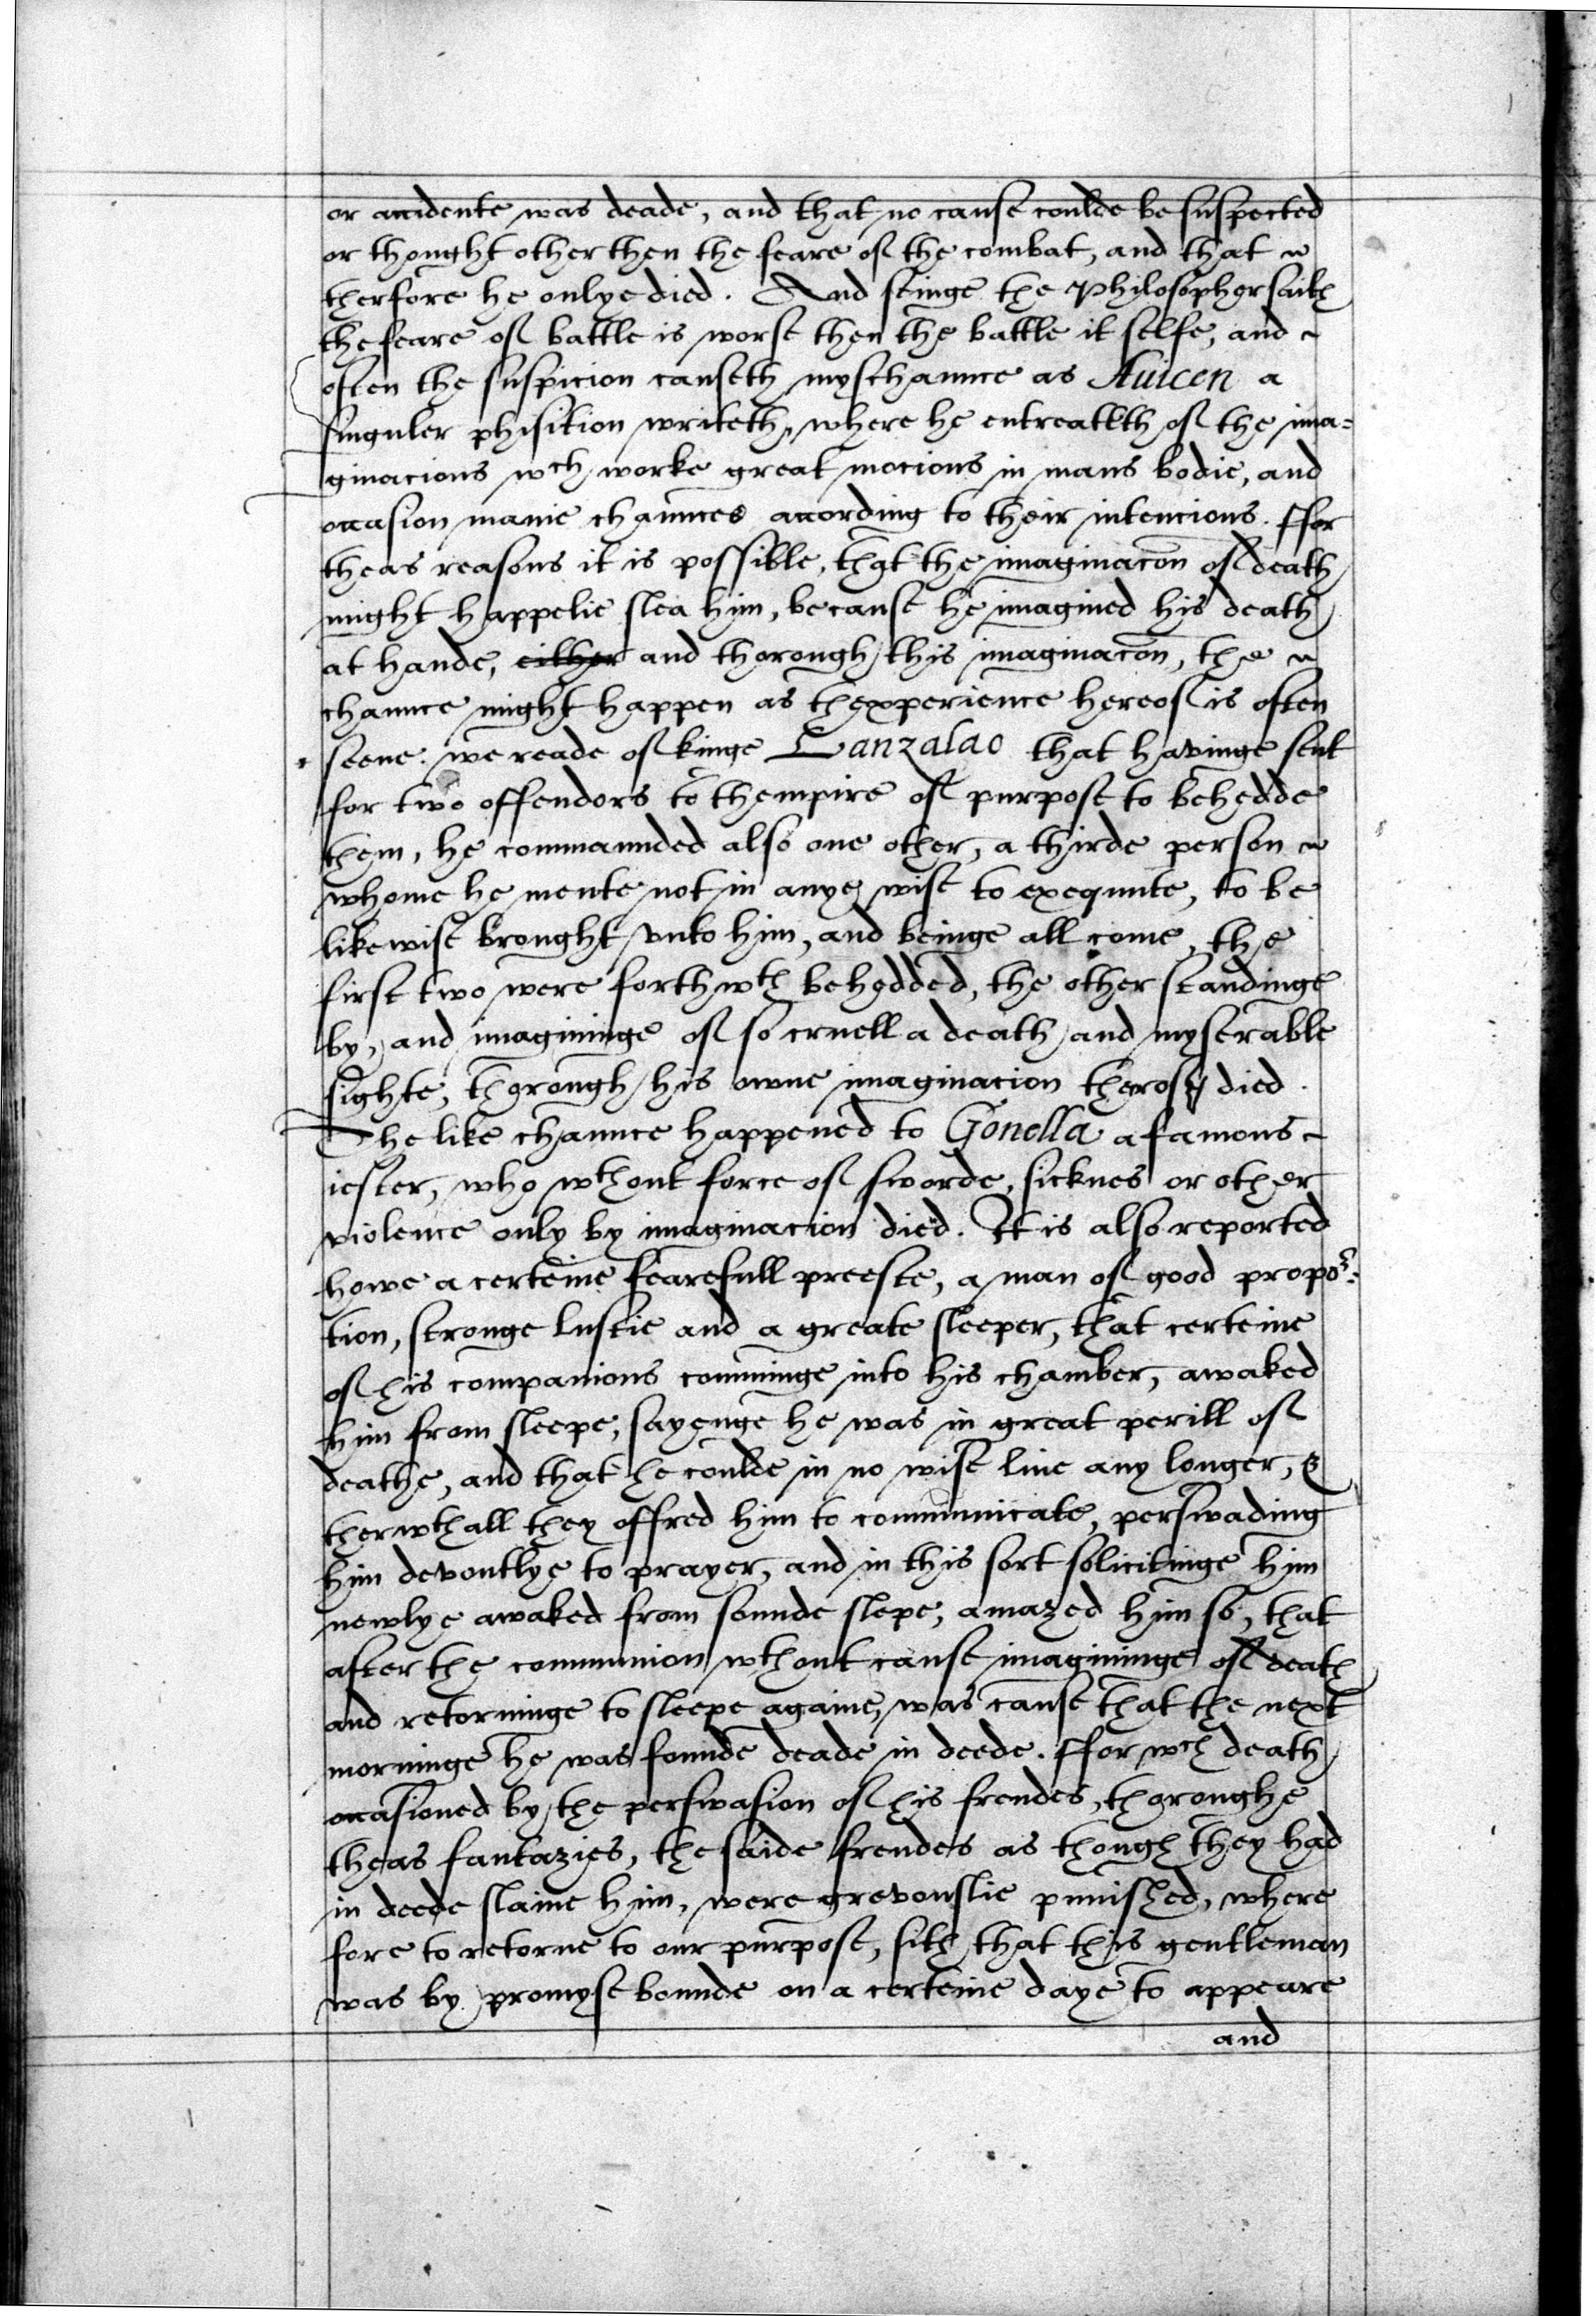 or accidente was deade, and that no cause coulde be suspected
or thought other then the feare of the combat, and that
therfore he onlye died. And seinge the Philosopher saith
the feare of battle is worse then the battle it selfe, and
often the suspicion causeth myschaunce as Auicen a
singuler phisition writeth, where he entreateth of the ima=
ginacions wch worke great mocions in mans bodie, and
occasion manie chaunces according to their intencions. ffor
theas reasons it is possible, that the imaginacōn of death
might happelie slea him, because he imagined his death
at hande, either and thorough this imaginacōn, the
chaunce might happen as thexperience hereof is often
seene. we reade of kinge Lanzalao that havinge sent
for two offendors to thempire of purpose to behedde
them, he commaunded also one other, a thirde person
whome he mente not in anye wise to exequute, to be
likewise brought vnto him, and beinge all come, the
first two were forthwth behedded, the other standinge
by, and imagininge of so cruell a death and myserable
sighte, thorough his owne imaginacion therof died.
The like chaunce happened to Gonella a famous
iester, who wthout force of sworde, sicknes or other
violence only by imaginacion died. It is also reported
howe a certeine fearefull preeste, a man of good propor=
tion, stronge lustie and a greate sleeper, that certeine
of his companions comminge into his chamber, awaked
him from sleepe, sayenge he was in great perill of
deathe, and that he coulde in no wise liue any longer, &
therwthall they offred him to communicate, perswading
him devoutlye to prayer, and in this sort solicitinge him
newlye awaked from sounde slepe, amazed him so, that
after the communion wthout cause imagininge of death
and retorninge to sleepe againe, was cause that the next
morninge he was founde deade in deede. ffor wch death
occasioned by the perswasion of his frendes, thoroughe
theas fantazies, the saide frendes as though they had
in deede slaine him, were grevouslie punished, where
fore to retorne to our purpose, sith that this gentleman
was by promyse bounde on a certeine daye to appeare
and